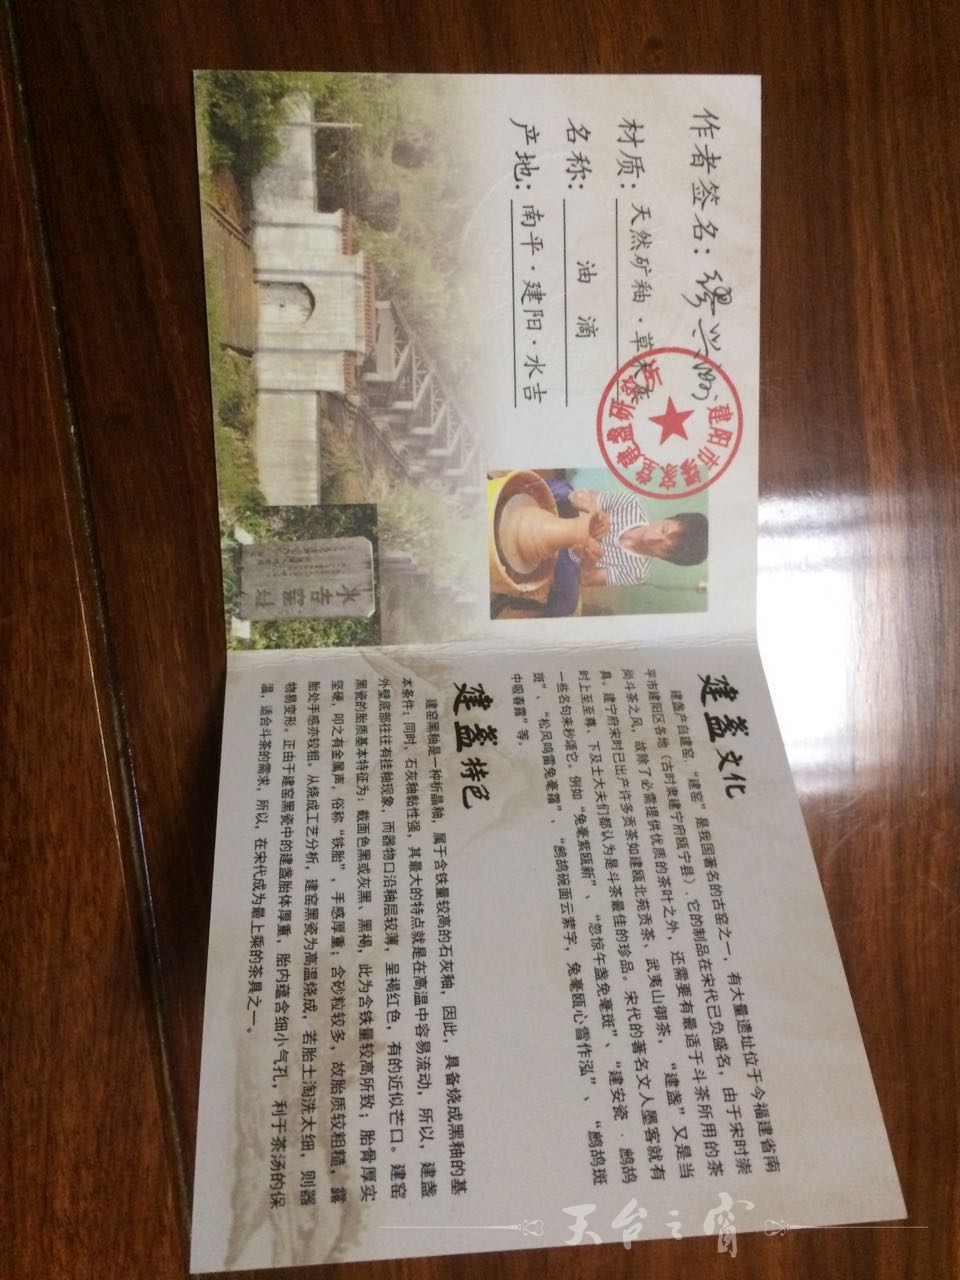 作者签名：
材质：天然矿釉·草木灰
名称：油滴
产地：南平·建阳·水吉
建阳市
水吉窑址
建盏文化
建盏产自建窑，“建窑”是我国著名的古窑之一，有大量遗址位于今福建省南
平市建阳区各地（古时隶建宁府瓯宁县）.它的制品在宋代已负盛名，由于宋时崇
尚斗茶之风，故除了必需提供优质的茶叶之外，还需要有最适于斗茶所用的茶
具。建宁府宋时已出产许多贡茶如建瓯北苑贡茶、武夷山御茶，“建盏”又是当
时上至至尊，下及士大夫们都认为是斗茶最佳的珍品。宋代的著名文人墨客就有
一些名句来秒颂它。例如“兔毫紫瓯新”、“忽惊午盏兔毫斑”、“建安瓷·鹧鸪
斑”、“松风鸣雷兔毫霜”、“鹧鸪碗面云萦字，兔毫瓯心雪作泓”、“鹧鸪斑
中吸春露”等。
建盏特色
建窑黑釉是一种析晶釉，属于含铁量较高的石灰釉，因此，具备烧成黑釉的基
本条件；同时，石灰釉黏性强，其最大的特点就是在高温中容易流动，所以，建盏
外壁底部往往有挂釉现象，而器物口沿釉层较薄，呈褐红色，有的近似芒口。建窑
黑瓷的胎质基本特征为：截面色黑或灰黑、黑褐，此为含铁量较高所致；胎骨厚实
坚硬，叩之有金属声，俗称“铁胎”，手感厚重；含砂粒较多，故胎质较粗糙，露
胎处手感亦较粗。从烧成工艺分析，建窑黑瓷为高温烧成，若胎土淘洗太细，则器
物易变形。正由于建窑黑瓷中的建盏胎体厚重，胎内蕴含细小气孔，利于茶汤的保
温，适合斗茶的需求，所以，在宋代成为最上乘的茶具之一。
天台之窗